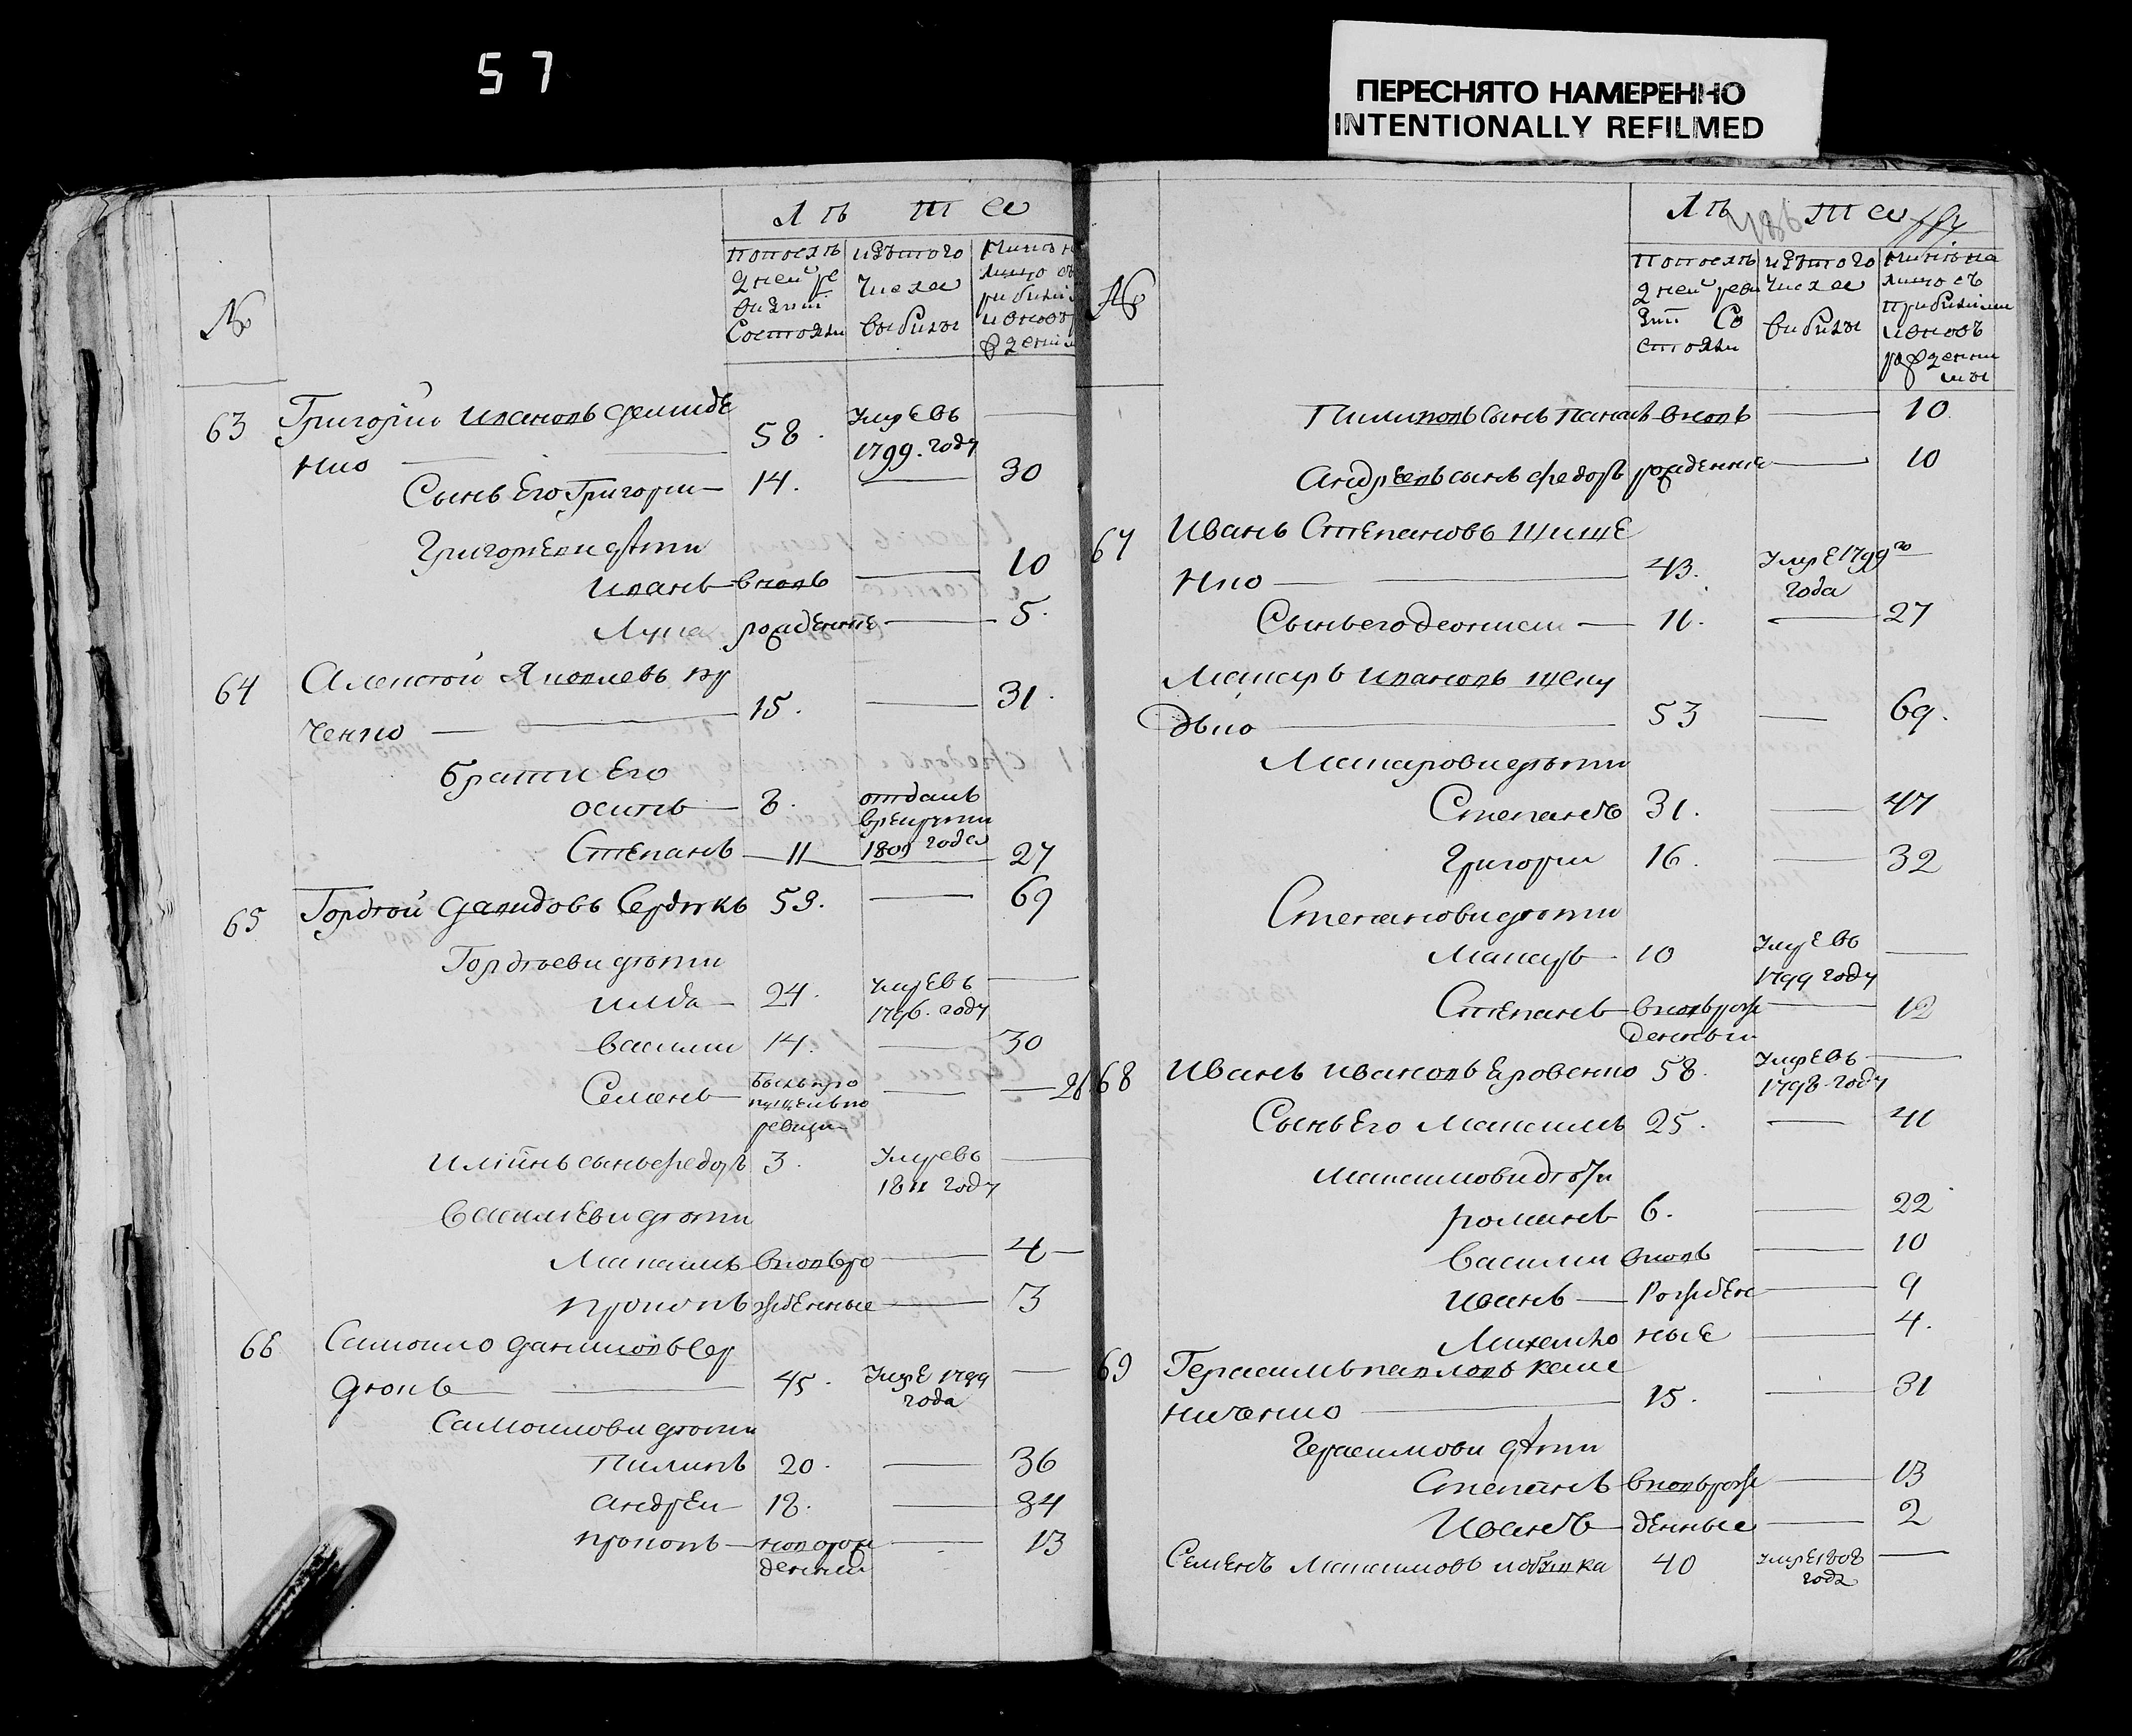 57
ПЕРЕСНЯТО НАМЕРЕННО
INTENTIONALLY REFILMED
№
Лѣта
По последней ревизіи состояли
изъ того числа выбыли
63 Григорій Ивановъ Демиде
нко 58. умре въ 1799. году —
Сынъ его Григори — 14. — 30
Григориеви дѣти
Иванъ вновь — 10
Лука рожденние — 5.
64 Алексѣй Яковлевъ
ченко 15. — 31.
Братти Его
Осипъ 8. отданъ в рекрути 1809 года
Степанъ 11 — 27
65 Гордѣй Давидовъ Сердюкъ 53. — 69
Гордѣеви дѣти
Илья 24. умре въ 1796. году —
Василии 14. — 30
Семенъ Былъ пропущенъ по ревизи — 26
Ильинъ сынъ Федоръ 3. Умре въ 1811 году —
Василиеви дѣти
Максимъ вновь ро — 4
Прокопъ жденные — 3
66 Самоило Даниловъ Сер
дюкъ 45. Умре 1799 года —
Самоилови дѣти
Пилипъ 20. — 36
Андреи 18. — 34
Прокопъ новорожденний — 13
№ 486
Лѣта
По последней ревизіи состояли
изъ того числа выбыли
нинѣ на лицо съ прибилими и вновь рожденними
Пилиповъ сынъ Панасъ вновь — 10.
Андреевъ сынъ Федоръ рожденние — 10
67 Иванъ Степановъ Щище
нко 43. Умре 1799го года
Сынъ его Деонисии — 11. — 27
Макаръ Ивановъ
53 — 69.
Макарови дѣти
Степанъ 31. — 47
Григории 16. — 32
Степанови дѣти
Макаръ 10 Умре въ 1799 году —
Степанъ вновь рожденныи — 12
68 Иванъ Ивановъ Еровенко 58. Умре въ 1798. году —
Сынъ Его Максимъ 25. — 41
Максимови дѣти
Романъ 6. — 22
Василии вновь — 10
Иванъ — Рожден — 9
Михаило ные — 4.
69 Герасимъ Павловъ Каше
ниченко 15. — 31
Герасимови дѣти
Степанъ вновь рож — 13
Иванъ денные — 2
Семенъ Максимовъ 40 умре 1808 года —